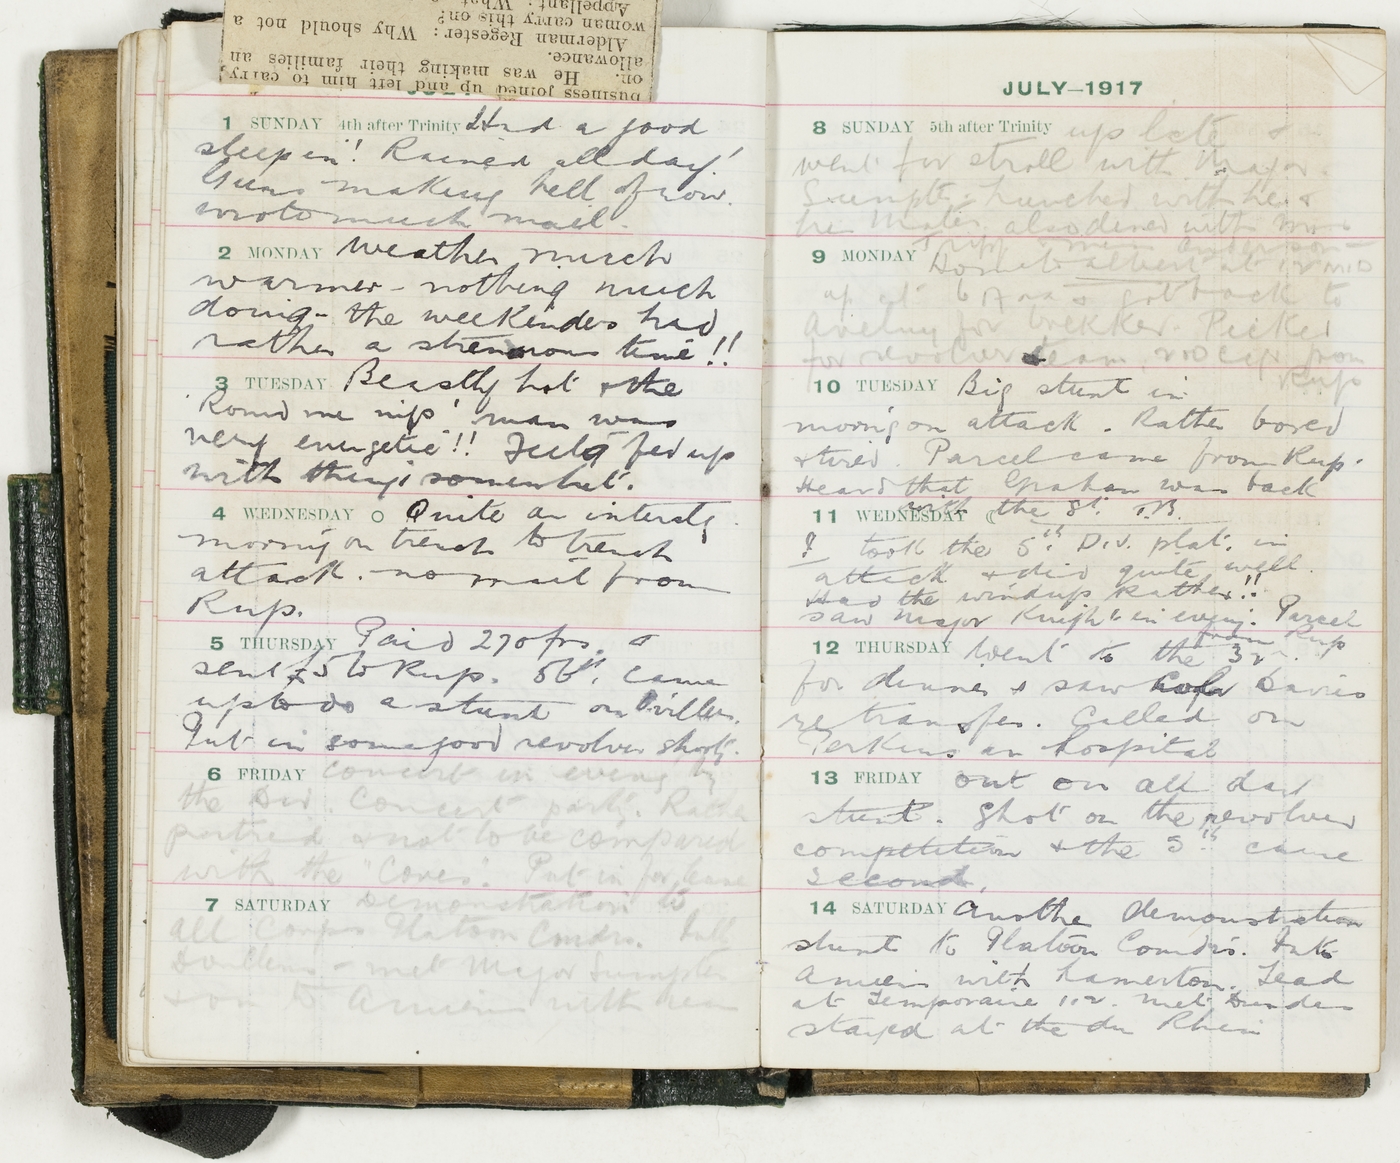 business joined up and left him to carry
on. He was making their families an
allowance.
Alderman Regester: Why should not a
woman carry this on?
Appellant: What
1 SUNDAY 4th after Trinity Had a good
sleep in! Rained all day!
Guns making hell of row.
wrote much mail.
2 MONDAY Weather much
warmer - nothing much
doing - the weekenders had
rather a strenuous time!!
3 TUESDAY Beastly hot & the
'Round me nip' man was
very energetic!! Fed up
with things somewhat.
4 WEDNESDAY Quite an interstg
morning on trench to trench
attack. no mail from
Rup.
5 THURSDAY Paid 270 frs. &
sent £5 to Rup. 56th came
up to do a stunt on
Put in some good revolver shootg.
6 FRIDAY Concert in evening by
the Div. Concert party. Rather
putrid & not to be compared
with the "Coves". Put in for leave
7 SATURDAY Demonstration to
all Corps Platoon Comdrs. Into
Doullens - met Major Sumpter
& on to Amiens with him
JULY—1917
8 SUNDAY 5th after Trinity up late &
went for stroll with Major
Sumpter. Lunched with he &
his Major also dined with
9 MONDAY at 12 MID
up at 6 A m & got back to
Aveluy for brekker. Picked
for revolver team, from
Rup
10 TUESDAY Big stunt in
morng on attack. Rather bored
& tired Parcel came from Rup.
Heard that Graham was back
with the 8th T.B.
11 WEDNESDAY
I took the 5th Div. plat. in
attack & did quite well.
Had the windup Rather!!
saw Major Knight in eveng. Parcel
from Rup
12 THURSDAY Went to the 3rd
for dinner & saw Davies
re transfer. Called on
Perkins in hospital
13 FRIDAY out on all day
stunt. Shot on the revolver
competition & the 5th came
second.
14 SATURDAY Another demonstration
stunt to Platoon Comdrs. Into
Amiens with Lamerton. Tead
at Temporaire
stayed at the du Rhein